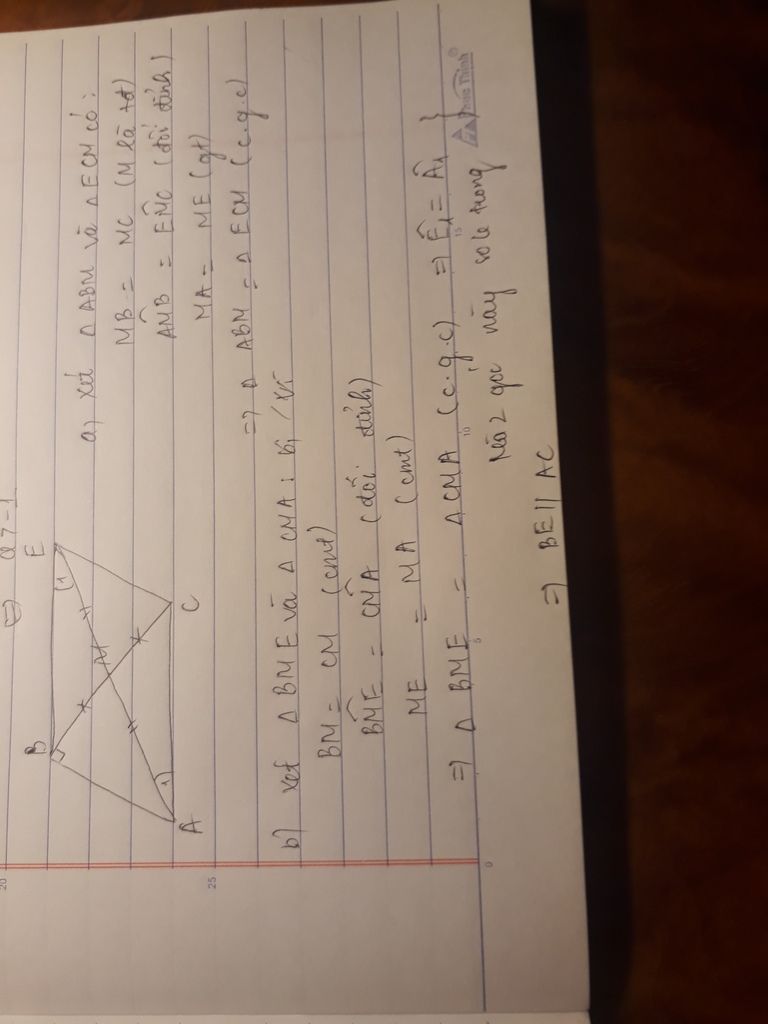 ⇔ a > -1
B
E
1
M
A
1
C
a, Xét Δ ABM và Δ ECM có:
MB = MC (M là tđ)
AMB̂ = EM̂C (đối đỉnh)
MA = ME (gt)
=> Δ ABM = Δ ECM (c.g.c)
b) Xét Δ BME và Δ CMA:
BM = CM (cmt)
BM̂E = CM̂A (đối đỉnh)
ME = MA (cmt)
=> Δ BME = Δ CMA (c.g.c) => Ê1 = Â1 }
Mà 2 góc này so le trong
=> BE // AC
20
25
0
5
10
15